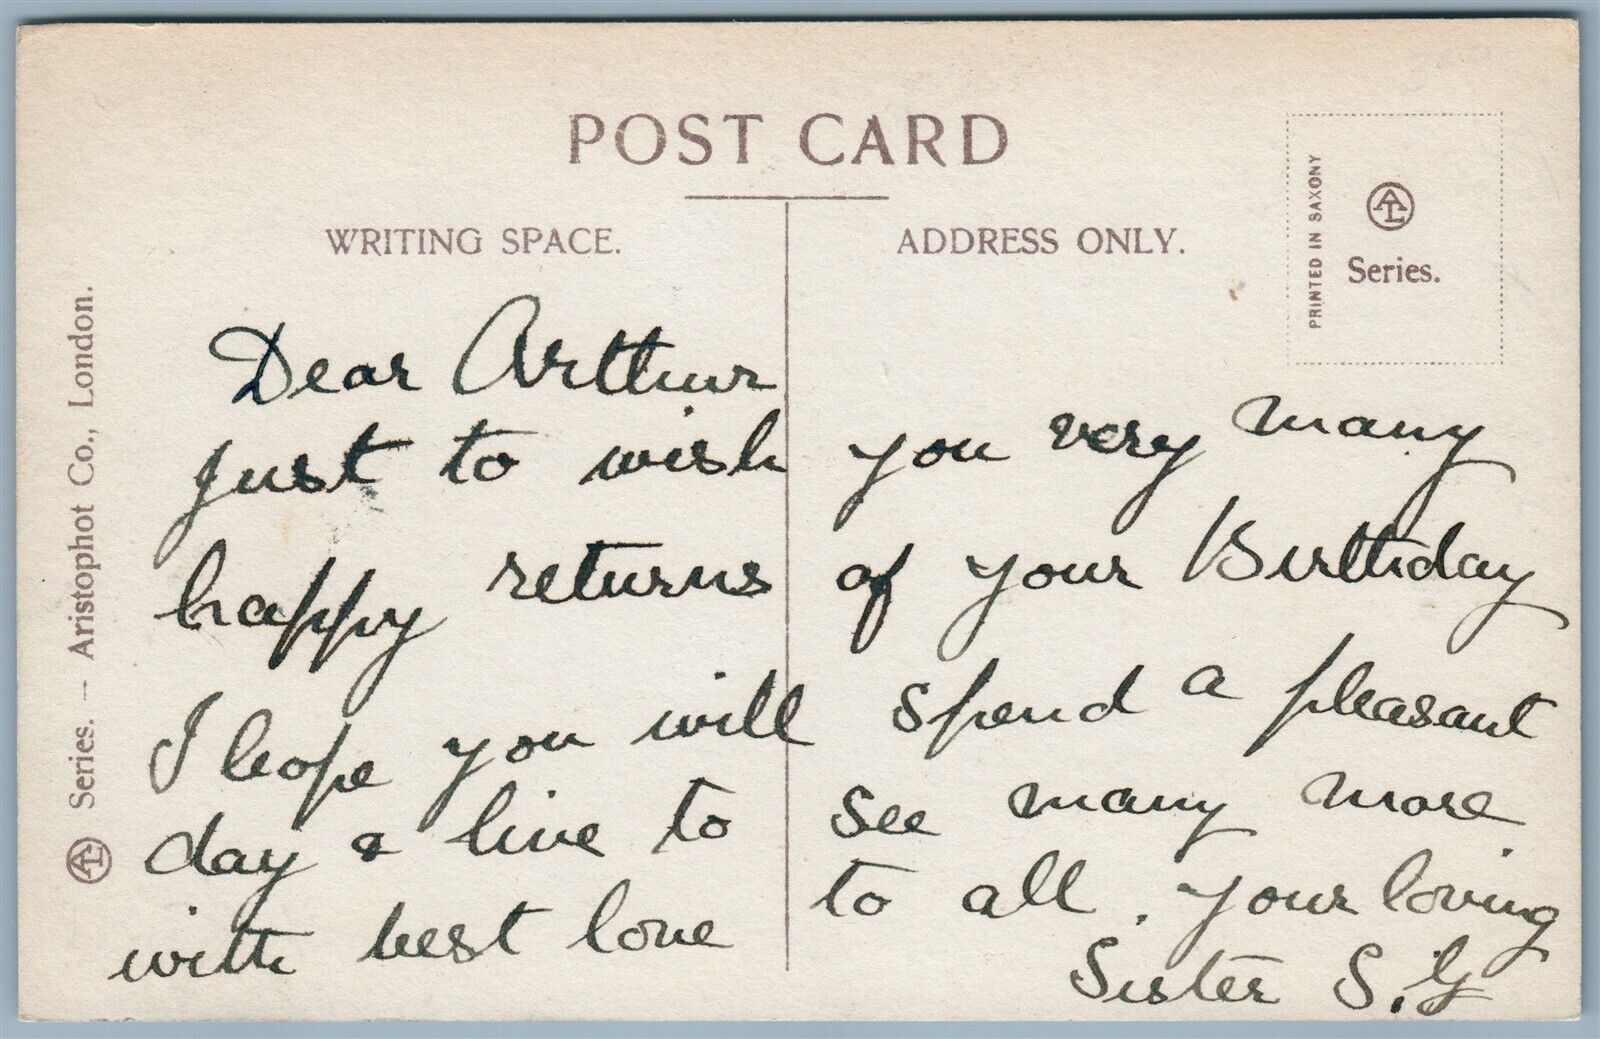 POST CARD
WRITING SPACE.
ADDRESS ONLY.
PRINTED IN SAXONY
Series.
Series. — Aristophot Co., London.
Dear Arthur
just to wish you very many
happy returns of your Birthday
I hope you will spend a pleasant
day & live to see many more
with best love to all. Your loving
Sister S.G